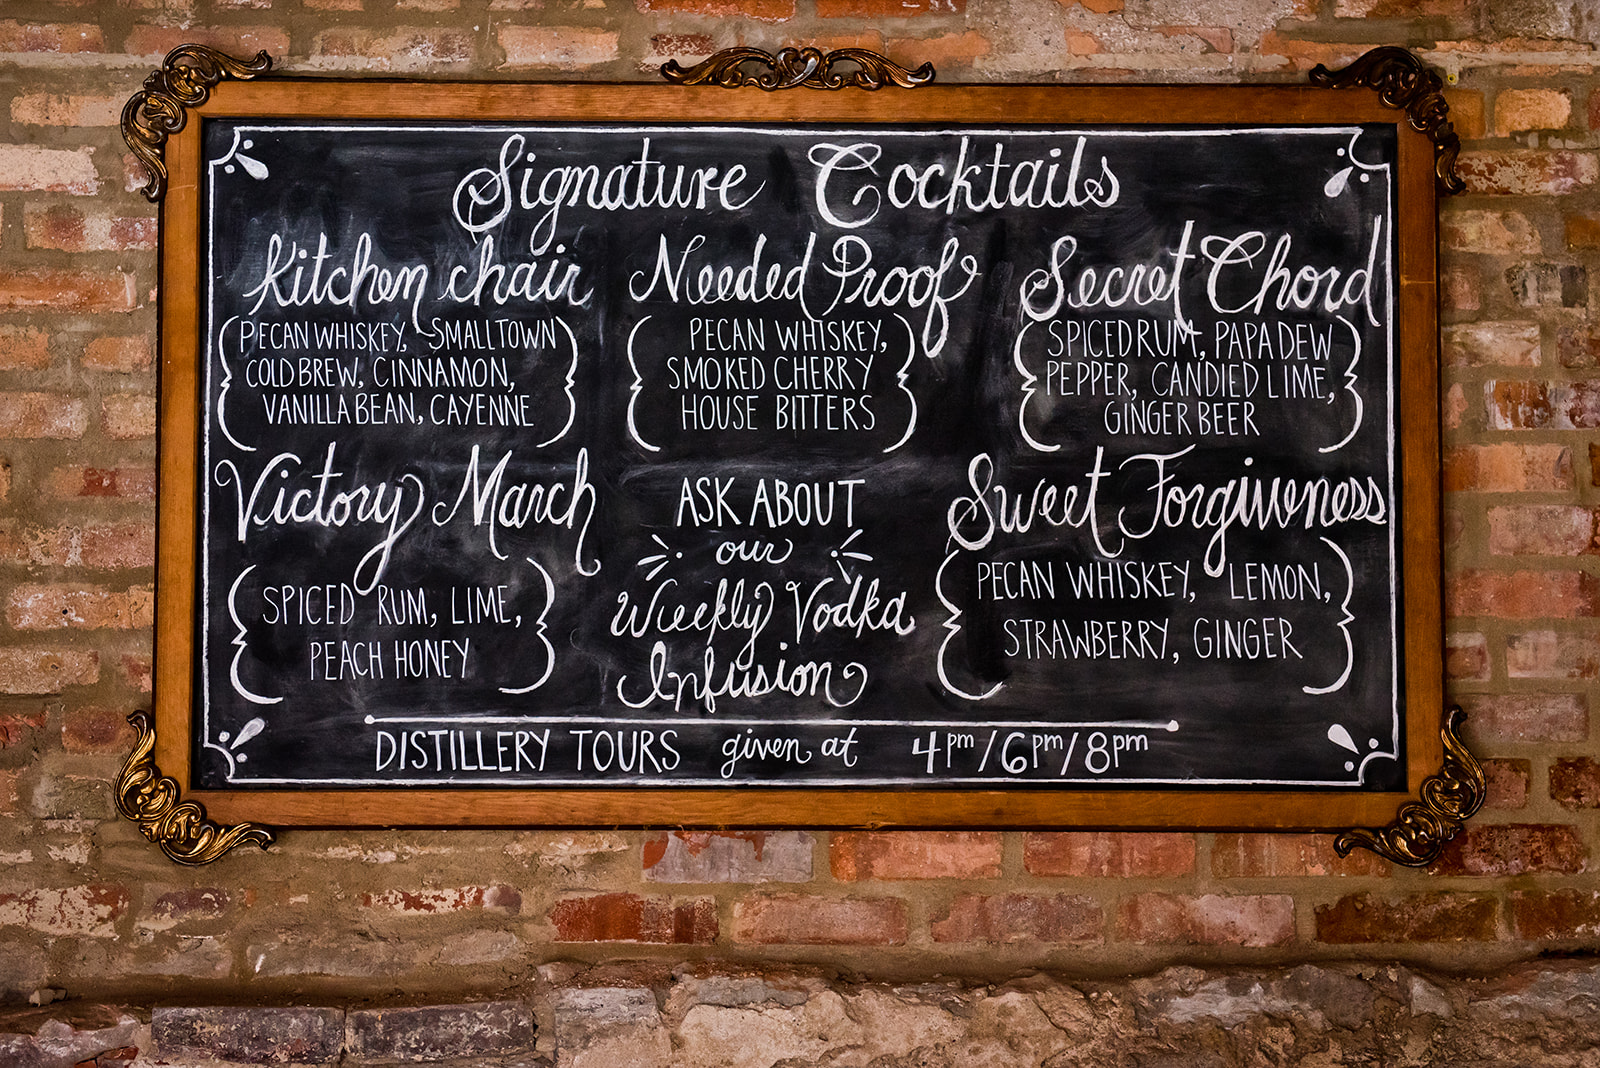 Signature Cocktails
Kitchen chair
PECAN WHISKEY, SMALLTOWN
COLD BREW, CINNAMON,
VANILLA BEAN, CAYENNE
Needed Proof
PECAN WHISKEY,
SMOKED CHERRY
HOUSE BITTERS
Secret Chord
SPICED RUM, PAPA DEW
PEPPER, CANDIED LIME,
GINGER BEER
Victory March
SPICED RUM, LIME,
PEACH HONEY
ASK ABOUT
our
Weekly Vodka
Infusion
Sweet Forgiveness
PECAN WHISKEY, LEMON,
STRAWBERRY, GINGER
DISTILLERY TOURS given at 4pm/6pm/8pm